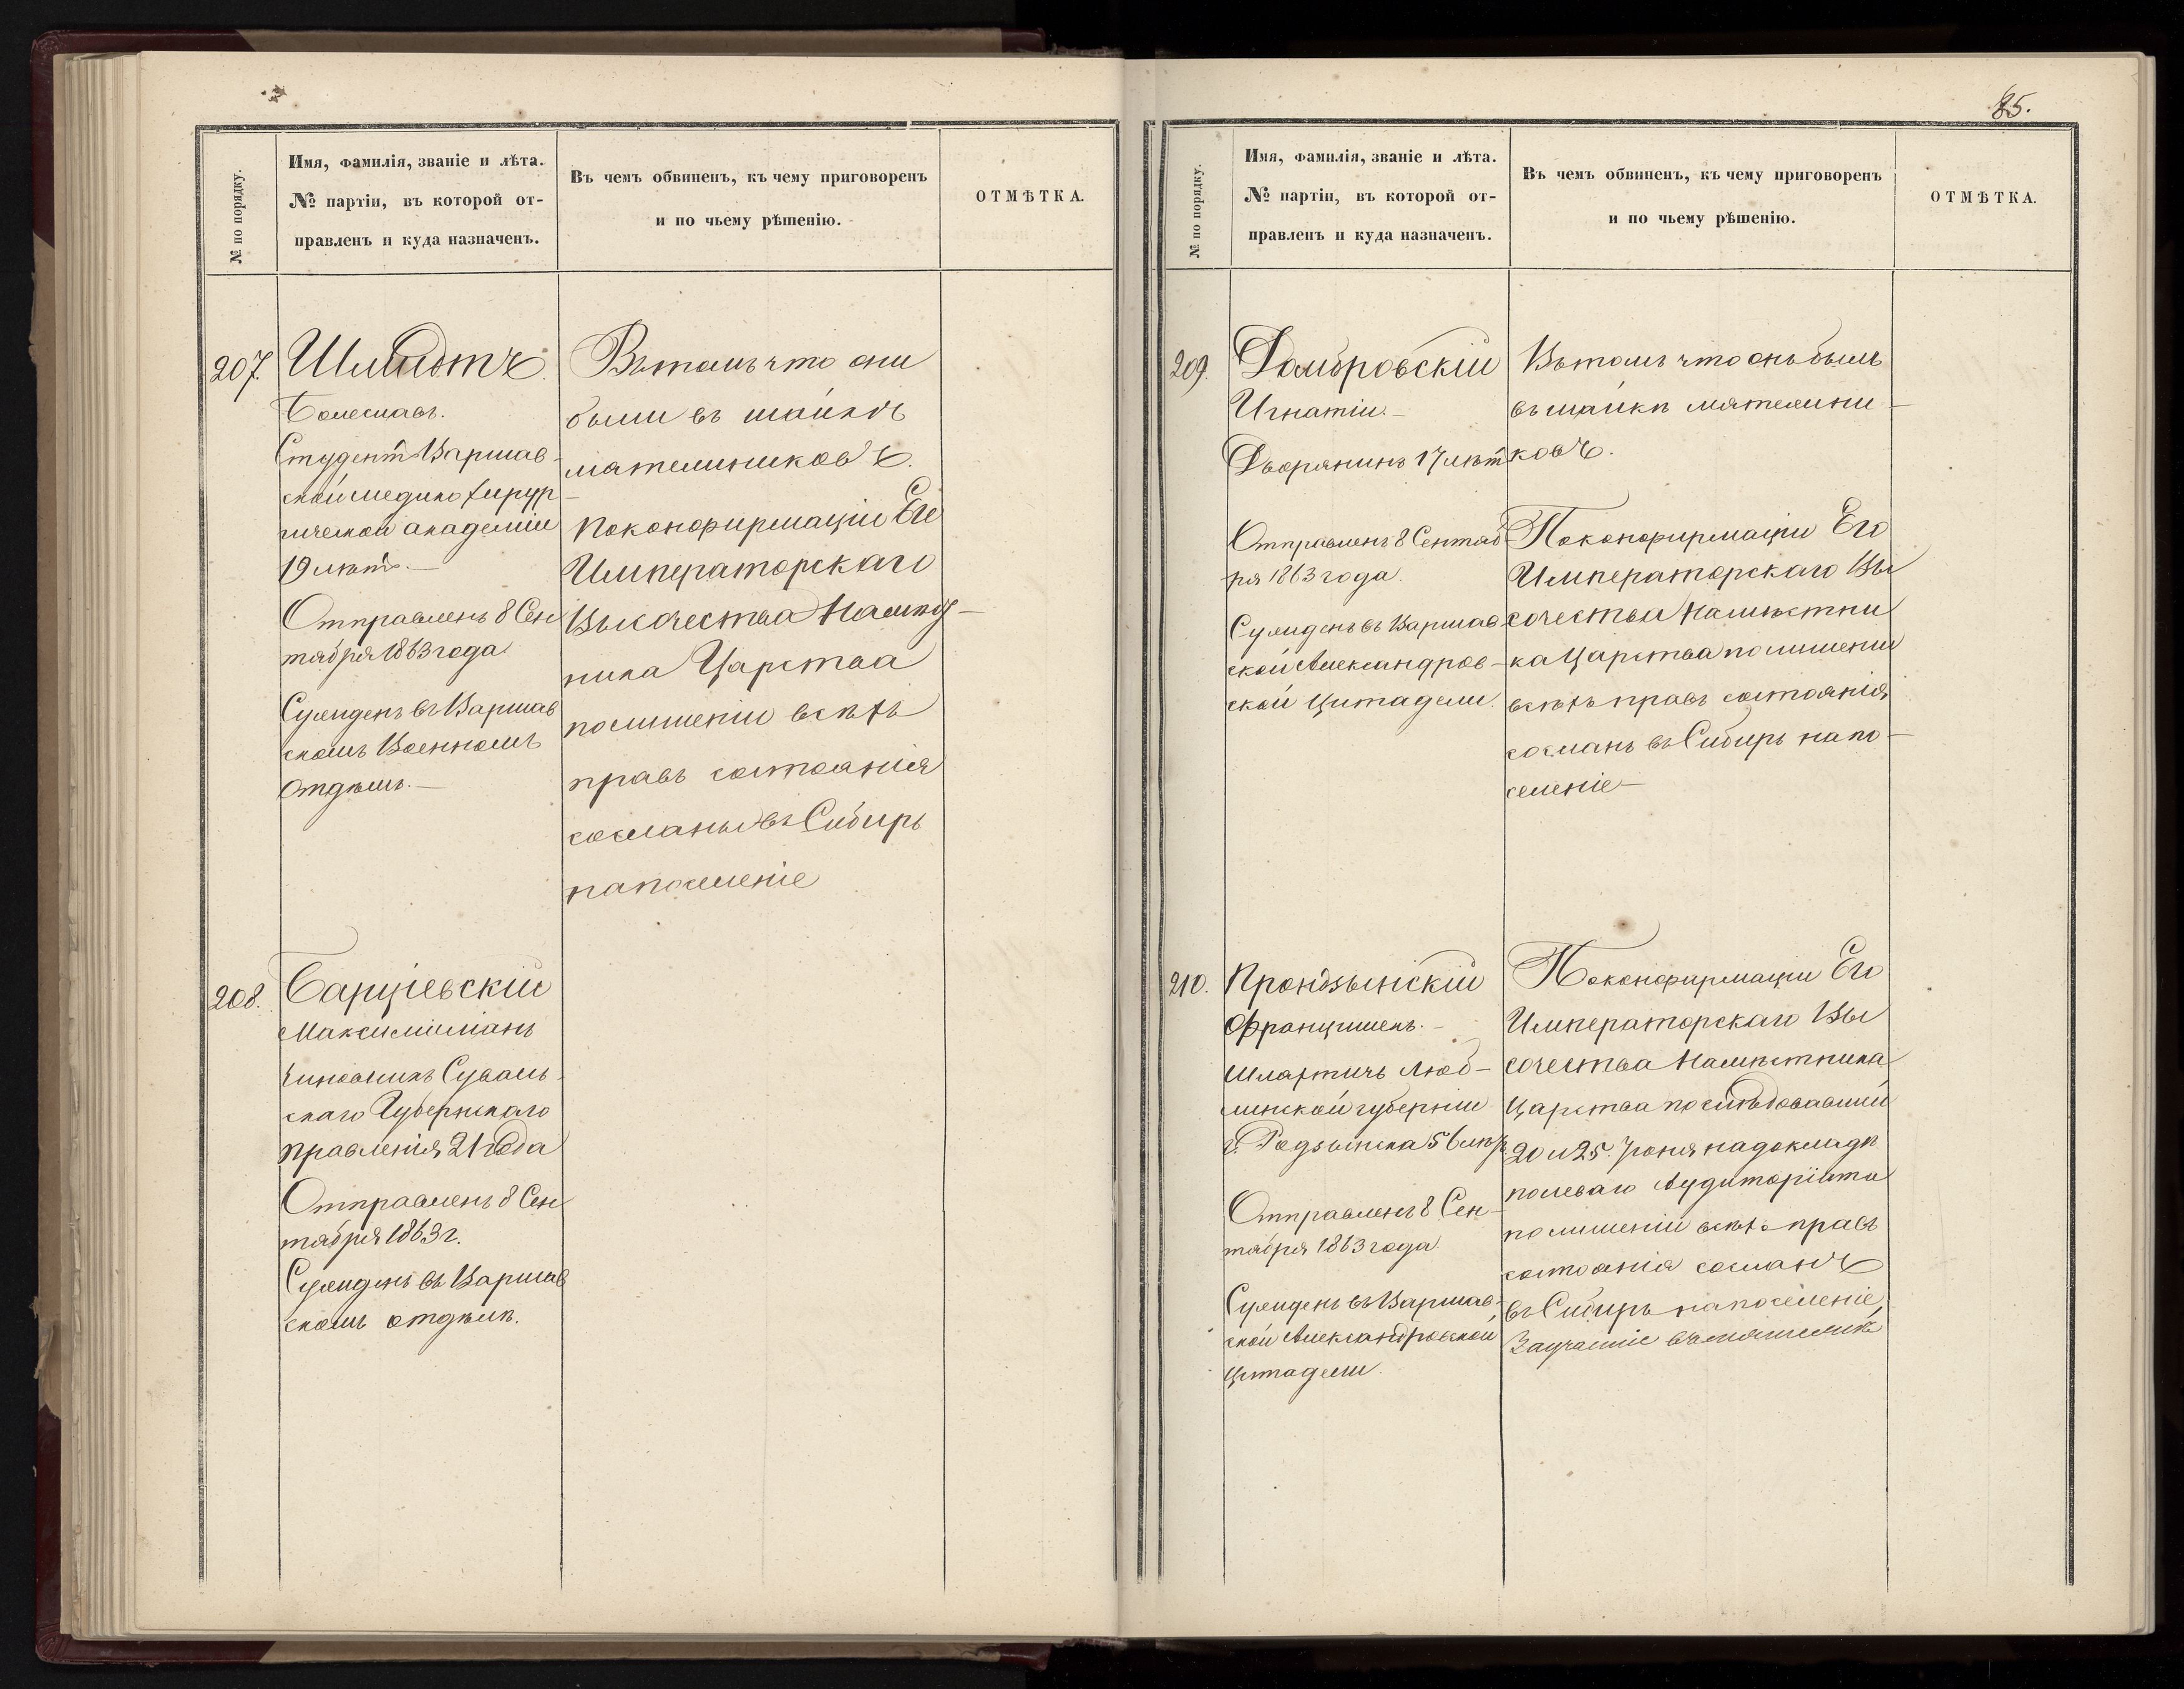 № по порядку.
Имя, фамилія, званіе и лѣта.
№ партіи, въ которой от-
правленъ и куда назначенъ.
Въ чемъ обвиненъ, къ чему приговоренъ
и по чьему рѣшенію.
ОТМѢТКА.
207.
Шмидтъ
Болеславъ.
Студентъ Варшав-
ской медико хирур
гической академіи
19 лѣтъ.—
Отправленъ 8 Сен
тября 1863 года
Сужденъ въ Варшав
скомъ Военномъ
Отдѣлъ.—
Въ томъ что они
были въ шайкѣ
мятежниковъ.
По конфирмаціи Его
Императорскаго
Высочества Намѣст-
ника Царства
по лишеніи всѣхъ
правъ состоянія
сосланы въ Сибирь
на поселеніе
208.
Максимиліанъ
Чиновникъ Суваль-
скаго Губернскаго
Правленія 21 года
Отправленъ 8 Сен
тября 1863 г.
Сужденъ въ Варшав
скомъ отдѣлѣ.
85.
№ по порядку.
Имя, фамилія, званіе и лѣта.
№ партіи, въ которой от-
правленъ и куда назначенъ.
Въ чемъ обвиненъ, къ чему приговоренъ
и по чьему рѣшенію.
ОТМѢТКА.
209.
Домбровскій
Игнатій.—
Дворянинъ 17 лѣтъ
Отправленъ 8 Сентяб
ря 1863 года.
Сужденъ въ Варшав-
ской Александров-
ской Цитадели.
Въ томъ что онъ былъ
въ шайкѣ мятежни-
ковъ.
По конфирмаціи Его
Императорскаго Вы
сочества Намѣстни
ка Царства по лишеніи
всѣхъ правъ состоянія
сосланъ въ Сибирь на по-
селеніе—
210.
Прондзынскій
Францишекъ.—
Шляхтичъ Люб-
линской губерніи
г. 56 лѣтъ
Отправленъ 8 Сен-
тября 1863 года
Сужденъ въ Варшав-
ской Александровской
Цитадели.
По конфирмаціи Его
Императорскаго Вы
сочества Намѣстника
Царства послѣдовавшей
20 и 25. Іюня на докладѣ
полеваго Аудиторіата
по лишеніи всѣхъ правъ
состоянія сосланъ
въ Сибирь на поселеніе,
За участіе въ мятежѣ